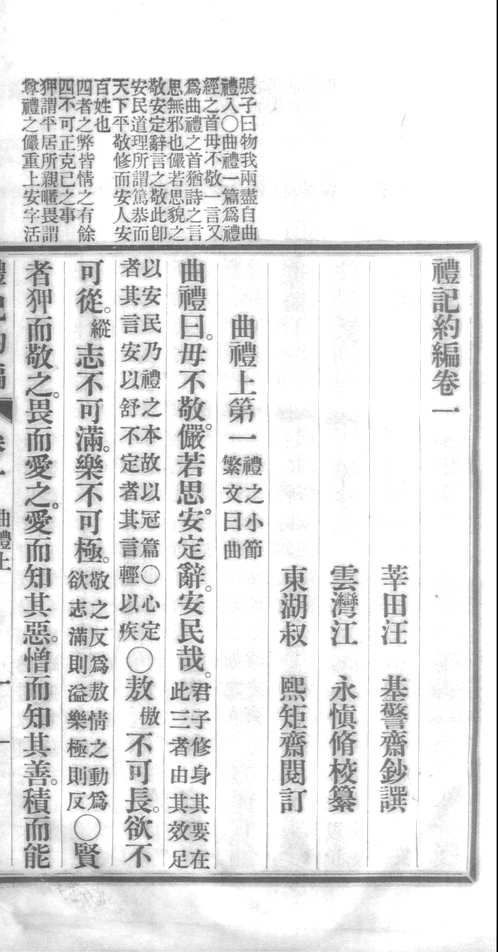 張子曰物我兩盡自曲
禮入〇曲禮一篇爲禮
經之首毋不敬一言又
爲曲禮之首猶詩之言
思無邪也儼若思貌之
敬安定辭言之敬此卽
安民道理所謂篤恭而
天下平敬修而安人安
百姓也
四者之弊皆情之有餘
四不可正克己之事
狎謂平居所親暱畏謂
尊禮之儼重上安字活
禮記約編卷一
莘田汪 基警齋鈔譔
雲灣江 永慎脩校纂
東湖叔 熙矩齋閱訂
曲禮上第一 禮之小節繁文曰曲
曲禮曰。毋不敬。儼若思。安定辭。安民哉。君子修身其要在此三者由其效足
以安民乃禮之本故以冠篇〇心定者其言安以舒不定者其言輕以疾〇敖傲不可長。欲不
可從。縱志不可滿。樂不可極。敬之反爲敖情之動爲欲志滿則溢樂極則反〇賢
者狎而敬之。畏而愛之。愛而知其惡。憎而知其善。積而能
曲禮上